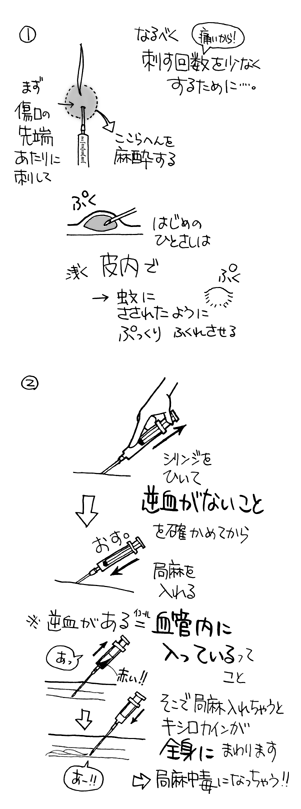 ①
なるべく
痛いから！
刺す回数を少なく
するために…。
まず
傷口の
先端
あたりに
刺して
ここらへんを
麻酔する
ぷく
はじめの
ひとさしは
浅く 皮内で
ぷく
→ 蚊に
さされたように
ぷっくり ふくれさせる
②
シリンジを
ひいて
逆血がないこと
を確かめてから
おす。
局麻を
入れる
※逆血がある＝血管内に
イコール
入っているって
こと
あっ
赤い!!
そこで局麻入れちゃうと
キシロカインが
全身に まわります
あー!!
⇨ 局麻中毒になっちゃう!!